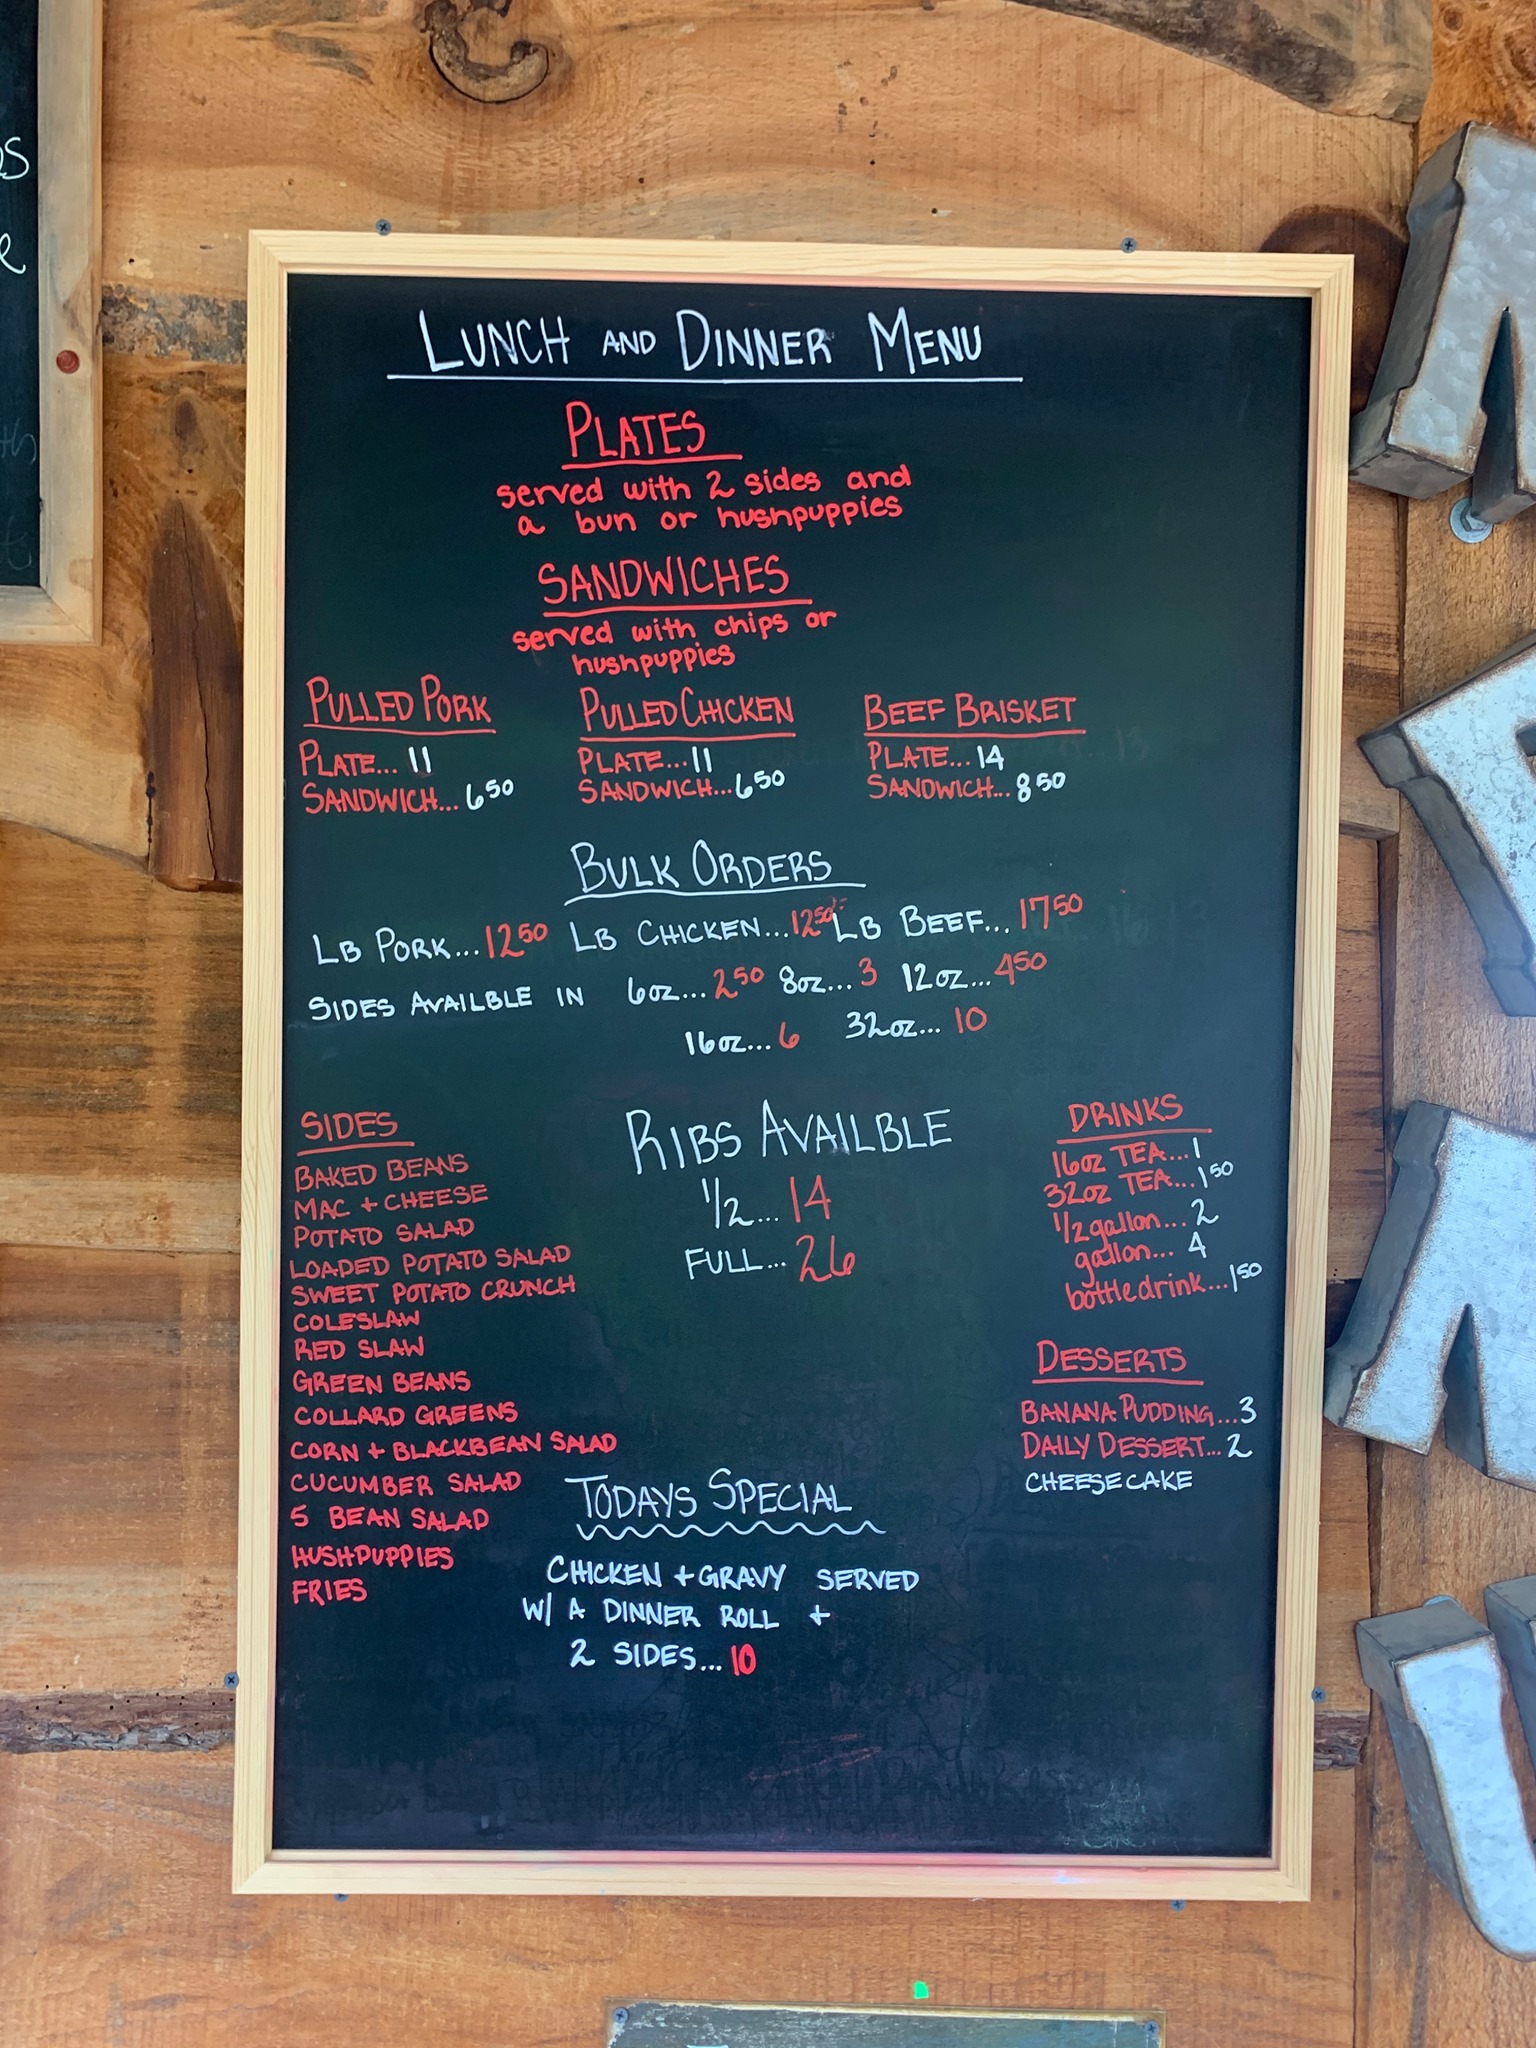 LUNCH AND DINNER MENU
PLATES
served with 2 sides and
a bun or hushpuppies
SANDWICHES
served with chips or
hushpuppies
PULLED PORK
PLATE... 11
SANDWICH... 6 50
PULLED CHICKEN
PLATE... 11
SANDWICH... 6 50
BEEF BRISKET
PLATE... 14
SANDWICH... 8 50
BULK ORDERS
LB PORK... 12 50 LB CHICKEN... 12 50 LB BEEF... 17 50
SIDES AVAILBLE IN 6oz... 2 50 8oz... 3 12oz... 4 50
16oz... 6 32oz... 10
SIDES
BAKED BEANS
MAC + CHEESE
POTATO SALAD
LOADED POTATO SALAD
SWEET POTATO CRUNCH
COLESLAW
RED SLAW
GREEN BEANS
COLLARD GREENS
CORN + BLACKBEAN SALAD
CUCUMBER SALAD
5 BEAN SALAD
HUSHPUPPIES
FRIES
RIBS AVAILBLE
1/2... 14
FULL... 26
DRINKS
16oz TEA... 1
32oz TEA... 1 50
1/2 gallon... 2
gallon... 4
bottledrink... 1 50
DESSERTS
BANANA PUDDING... 3
DAILY DESSERT... 2
CHEESECAKE
TODAYS SPECIAL
CHICKEN + GRAVY SERVED
W/ A DINNER ROLL +
2 SIDES... 10